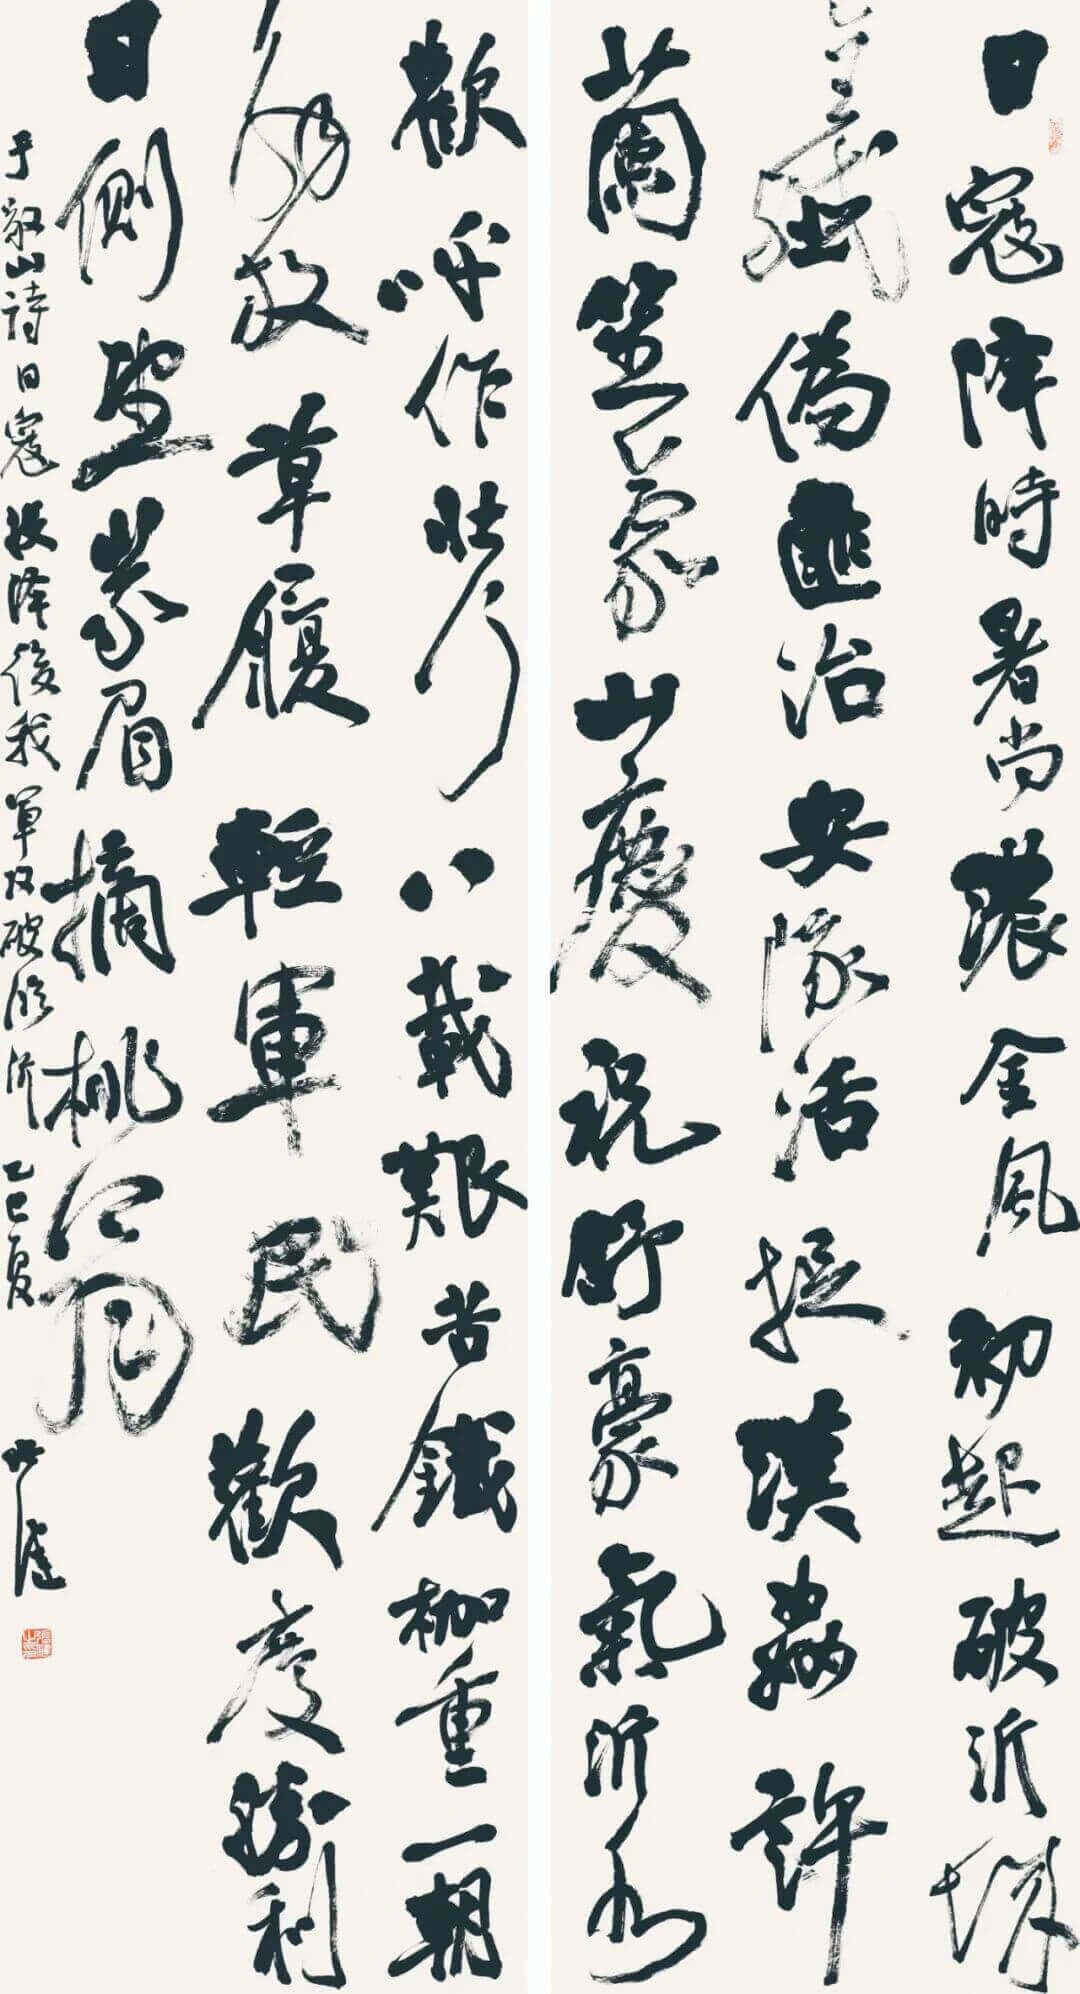 日寇降時暑尚濃金風初起破沂城
全殲偽匪治安隊活捉漢蟊許
蘭笙蒙山慶祝舒豪氣沂水
歡呼作壯行八載艱苦鐵枷重一朝
解放草履輕軍民歡度勝利
日側望峩眉摘桃翁
于敬山詩日寇投降後我軍攻破臨沂乙巳夏